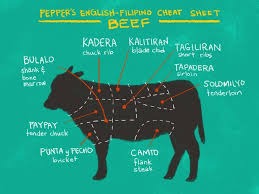 PEPPER'S ENGLISH-FILIPINO CHEAT SHEET
BEEF
KADERA
chuck rib
KALITIRAN
blade clod
TAGILIRAN
short ribs
TAPADERA
sirloin
SOLOMILYO
tenderloin
BULALO
shank &
bone
marrow
PAYPAY
tender chuck
PUNTA y PECHO
brisket
CAMTO
flank
steak